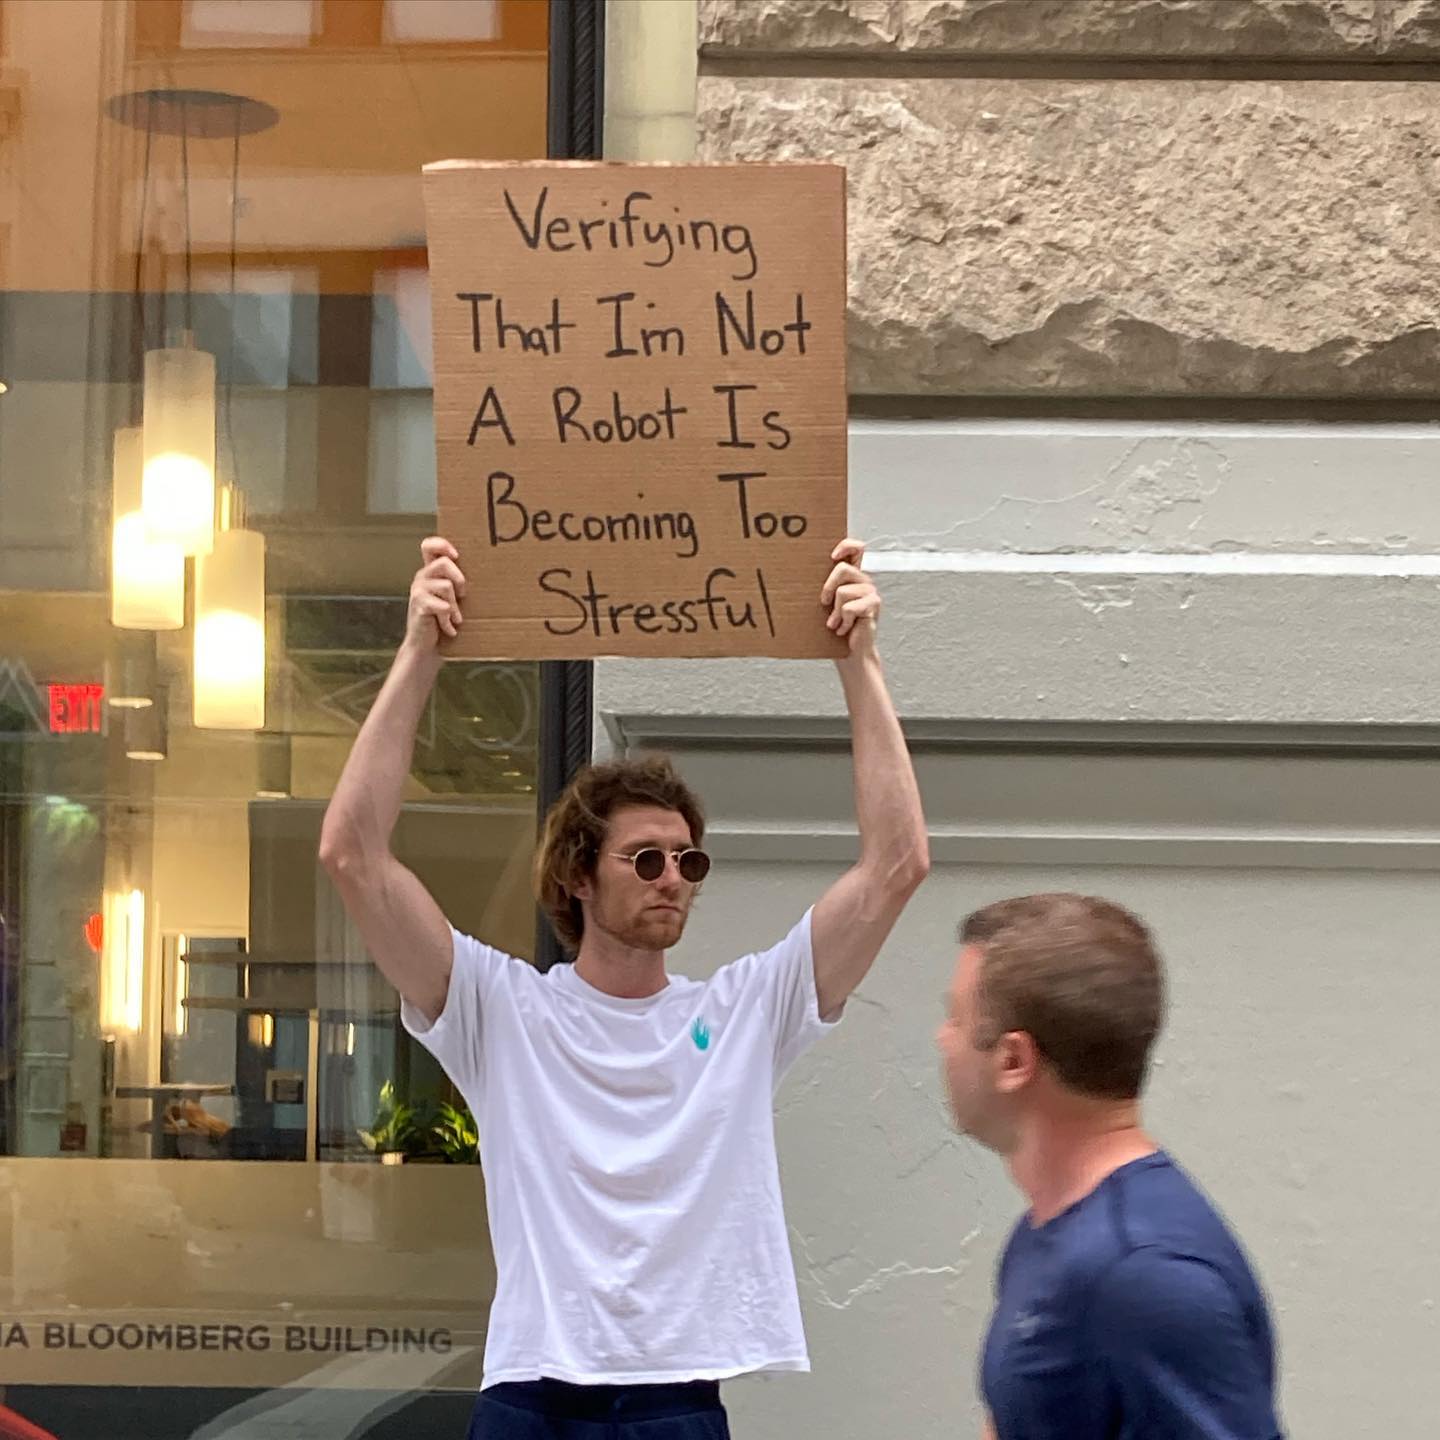 Verifying
That I'm Not
A Robot Is
Becoming Too
Stressful
EXIT
BLOOMBERG BUILDING